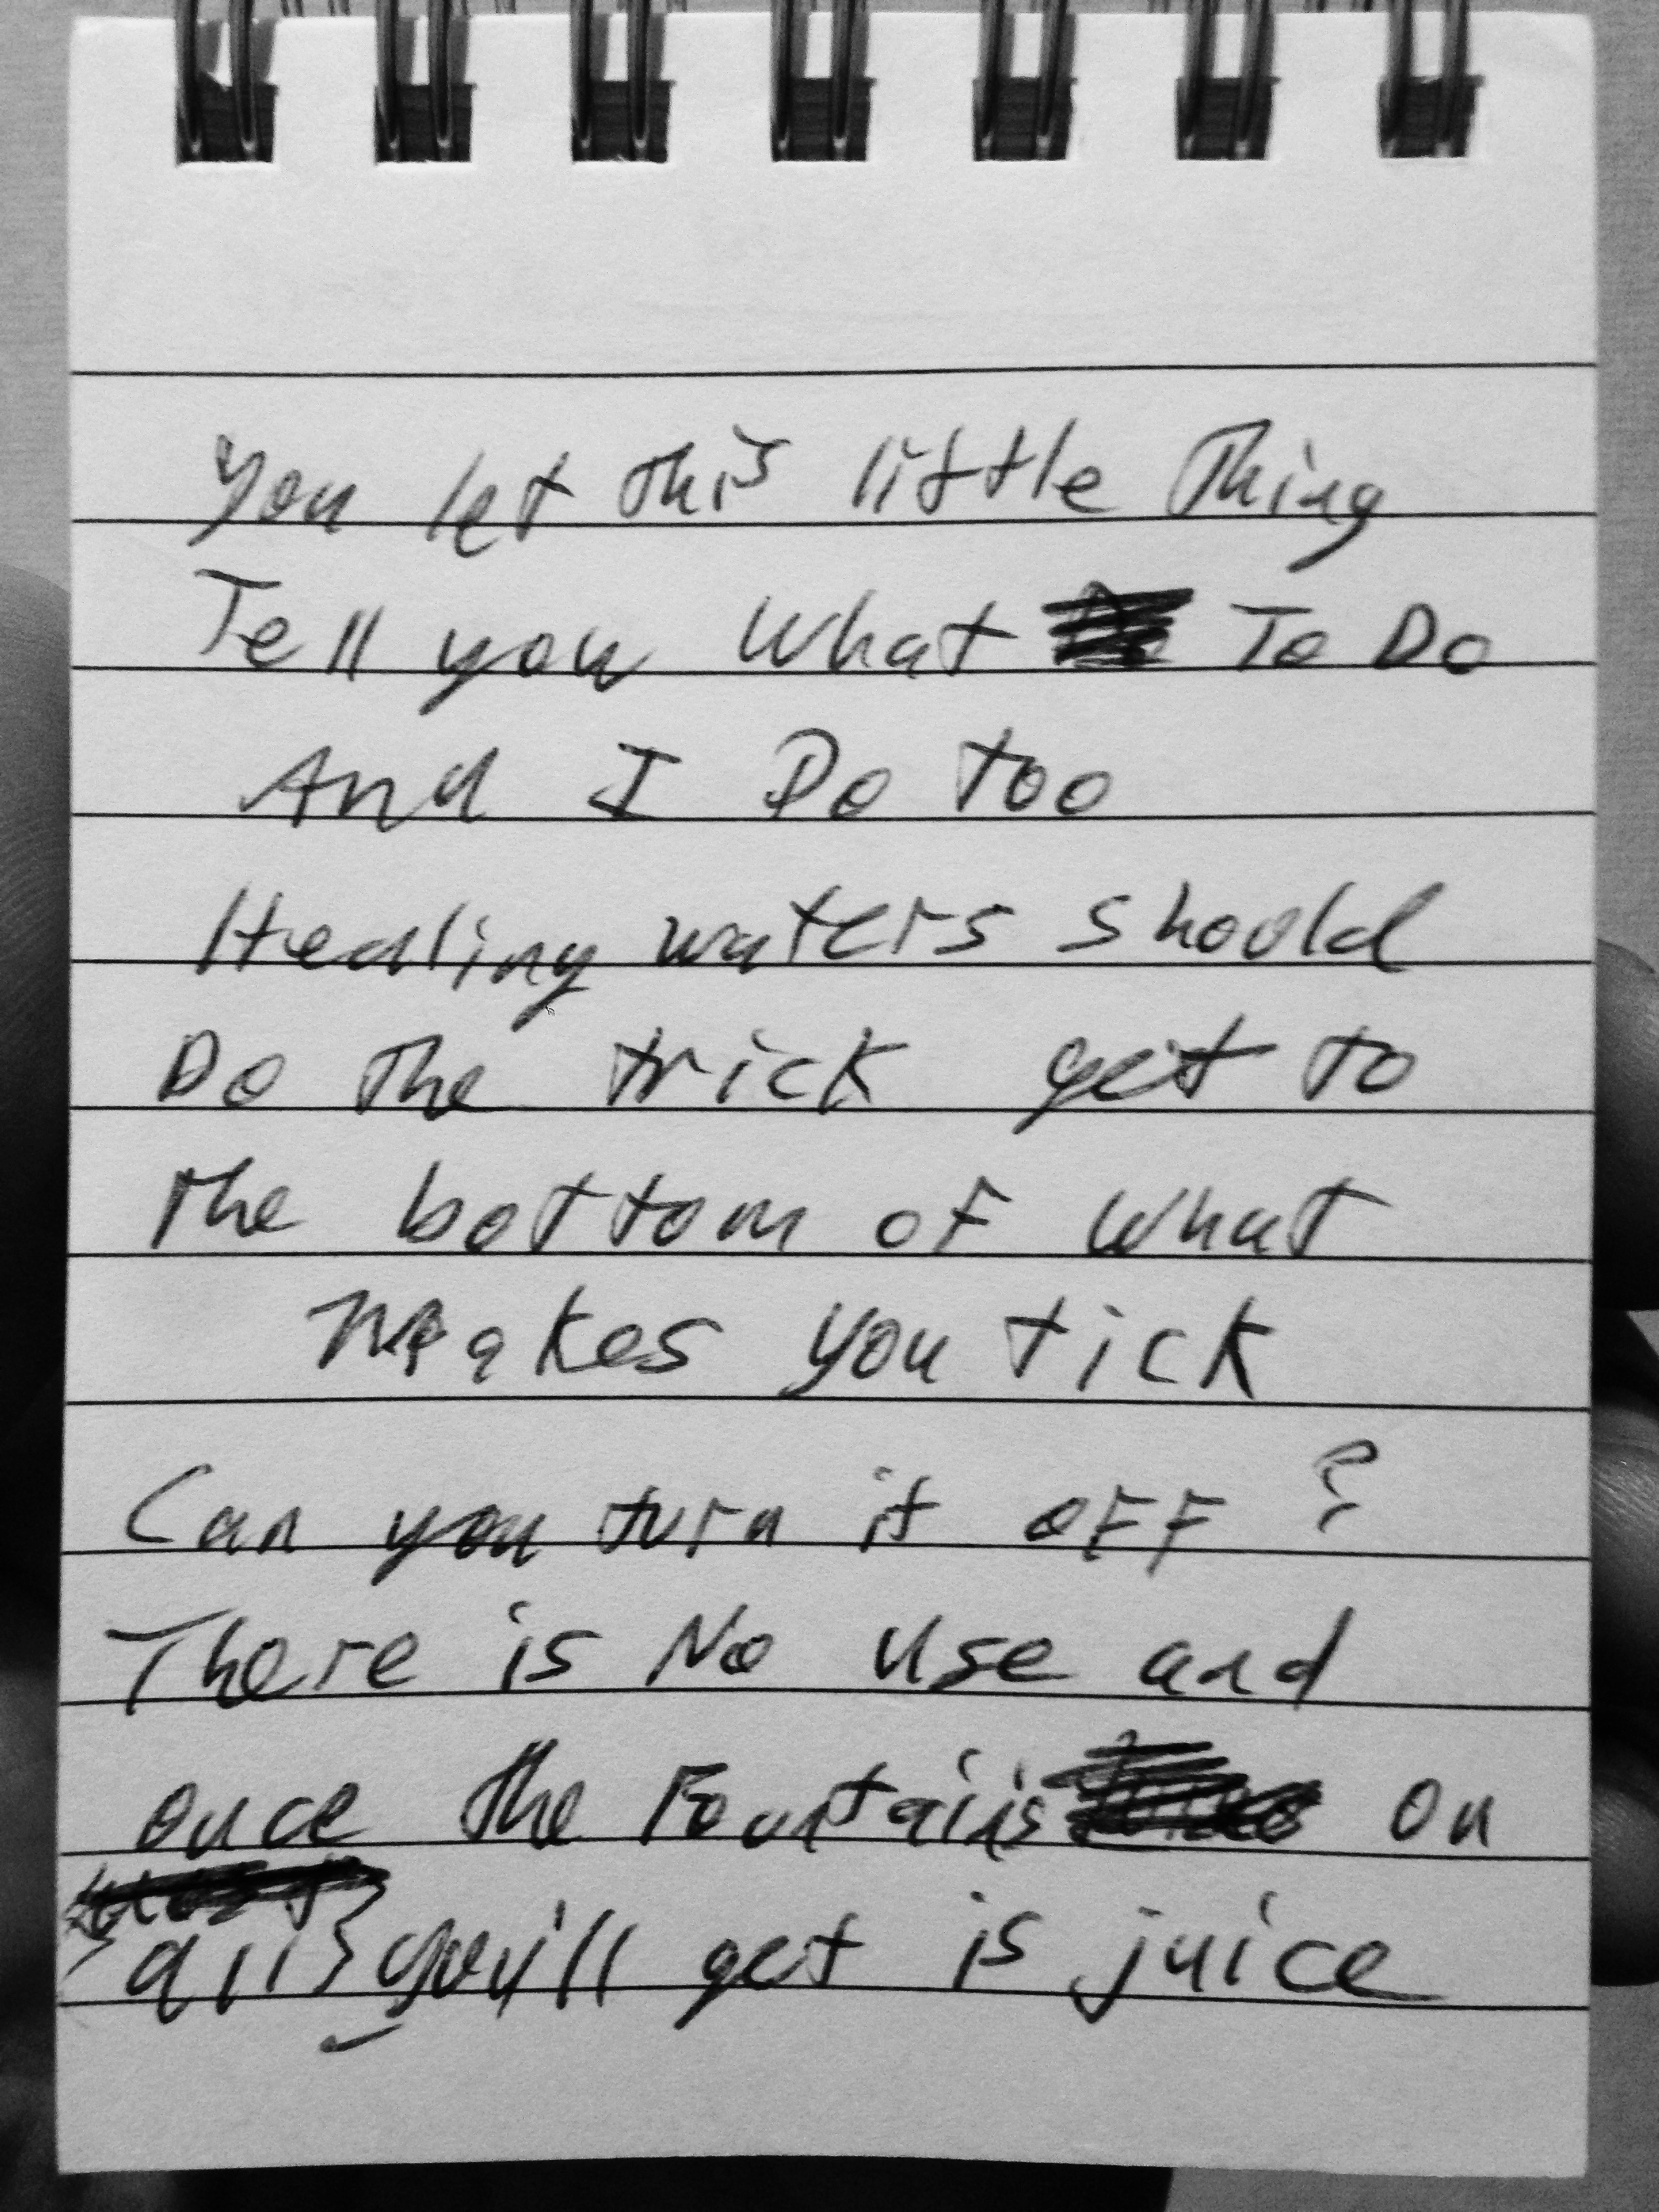 You let this little Thing
Tell you what To Do
And I Do too
Healing waters shoold
Do the trick get to
the bottom of what
Makes you tick
Can you turn it off ?
There is No use and
once the Fountain's on
{all} you'll get is juice